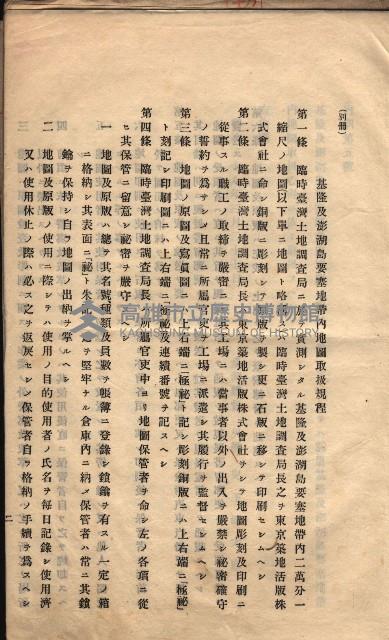 (別冊)
基隆及澎湖島要塞地帶內地圖取扱規程
第一條 臨時臺灣土地調査局ニ於テ實測シタル基隆及澎湖島要塞地帶內二萬分一
縮尺ノ地圖(以下單ニ地圖ト略稱ス)ハ臨時臺灣土地調査局長之ヲ東京築地活版株
式會社ニ命シ銅版ニ彫刻シ原版ヲ製シ更ニ石版ニ移シテ印刷セシムヘシ
第二條 臨時臺灣土地調査局長ハ東京築地活版株式會社ヲシテ地圖彫刻及印刷ニ
從事スル職工ノ取締ヲ嚴密ニシ其工場ニハ當事者以外ノ出入ヲ嚴禁シ祕密確守
ノ誓約ヲ爲サシメ且常ニ所屬官吏ヲ工場ニ派遣シ其履行ヲ監督セシムヘシ
第三條 地圖ノ原圖及寫眞圖ニハ上右端ニ「極祕」ト記シ彫刻銅版ニハ上右端ニ「極祕」
ト刻記シ印刷圖ニハ上右端ニ極祕及連續番號ヲ記スヘシ
第四條 臨時臺灣土地調査局長ハ所屬官吏中ヨリ地圖保管者ヲ命シ左ノ各項ニ從
ヒ其保管ニ留意シ祕密ヲ嚴守スヘシ
一 地圖及原版ハ總テ其名號種類及員數ヲ帳簿ニ登錄シ鎖鑰ヲ有スル一定ノ箱
ニ格納シ其表面ニ「祕」ト朱記シテ堅牢ナル倉庫內ニ納メ保管者ハ常ニ其鎖
鑰ヲ保持シ自ラ地圖ノ出納ヲ掌ルヘシ
二 地圖及原版ノ使用ニ際シテハ使用ノ目的使用者ノ氏名ヲ每日記錄シ使用濟
又ハ使用休止ノ際ハ必ス之ヲ返戾セシメ保管者自ラ格納ノ手續ヲ爲スヘシ
二
高雄市立歷史博物館
KAOHSIUNG MUSEUM OF HISTORY